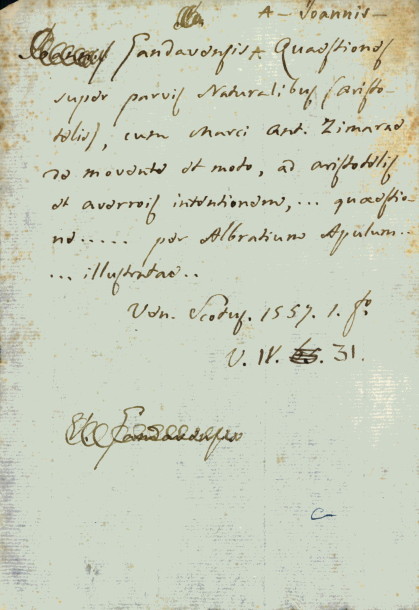 A - Joannis -
Gandavensis A Quaestiones
super parvis Naturalibus Aristo-
telis, cum Marci Ant. Zimarae
de movente et moto, ad aristotelis
et averrois intentionem, ... quaestio-
ne ..... per Albratium Apulum..
... illustratae..
Ven. Scotus. 1557. 1. fo.
V. IV. 31.
Gandavensis